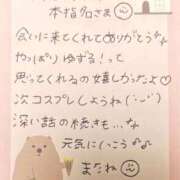 本指名さま
会いに来てくれてありがとう
やっぱりゆずる！って
思ってくれるの嬉しかったよ♡
次コスプレしようね(¨)
深い話の続きも...
元気にいっこう
またね